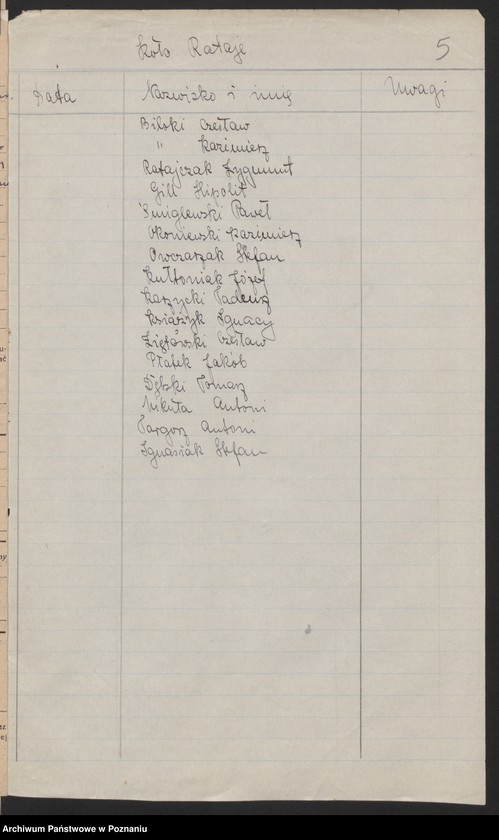 Koło Rataje 5
Data Nazwisko i imię Uwagi
Bilski Czesław
" Kazimierz
Ratajczak Zygmunt
Gill Hipolit
Śmiglewski Paweł
Okoniewski Kazimierz
Owczarzak Stefan
Kułtoniak Józef
Karzycki Tadeusz
Książyk Ignacy
Czesław
Płatek Jakób
Dębski Tomasz
Mikuła Antoni
Targosz Antoni
Ignasiak Stefan
Archiwum Państwowe w Poznaniu